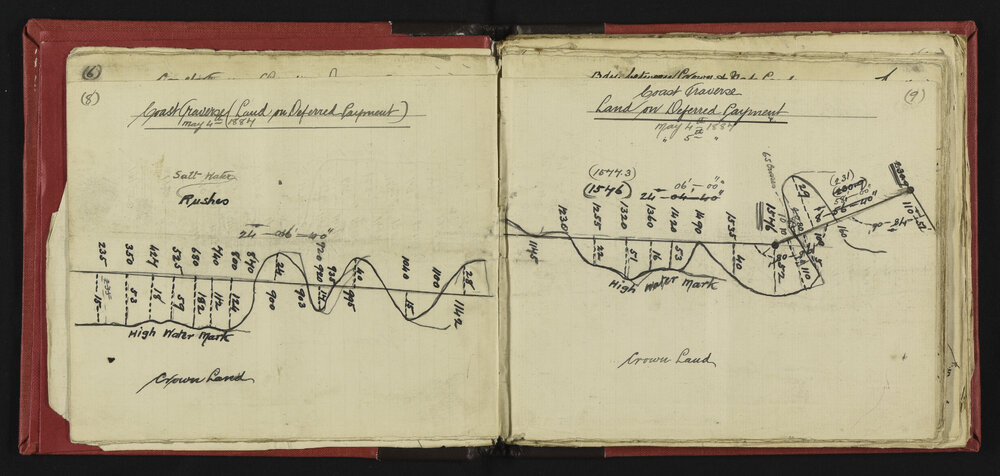 (6)
(8)
Coast Traverse (Land on Deferred Payment)
May 4th 1884
Salt Water
Rushes
24 — 06' — 40"
235 350 424 525 680 740 800 840 920 920 938 1040 1100
15 53 18 59 182 112 124 900 24 903 14 42 995 15 28 1142
235
High Water Mark
Crown Land
(9)
Coast Traverse
Land on Deferred Payment
May 4th 1884
" 5th "
(1577.3)
(1546)
06' — 00"
24 — 04 — 40"
1145 1230 1255 1320 1360 1420 1490 1535 1546
22 51 16 53 40 52
29
(231)
110
160
High Water Mark
Crown Land